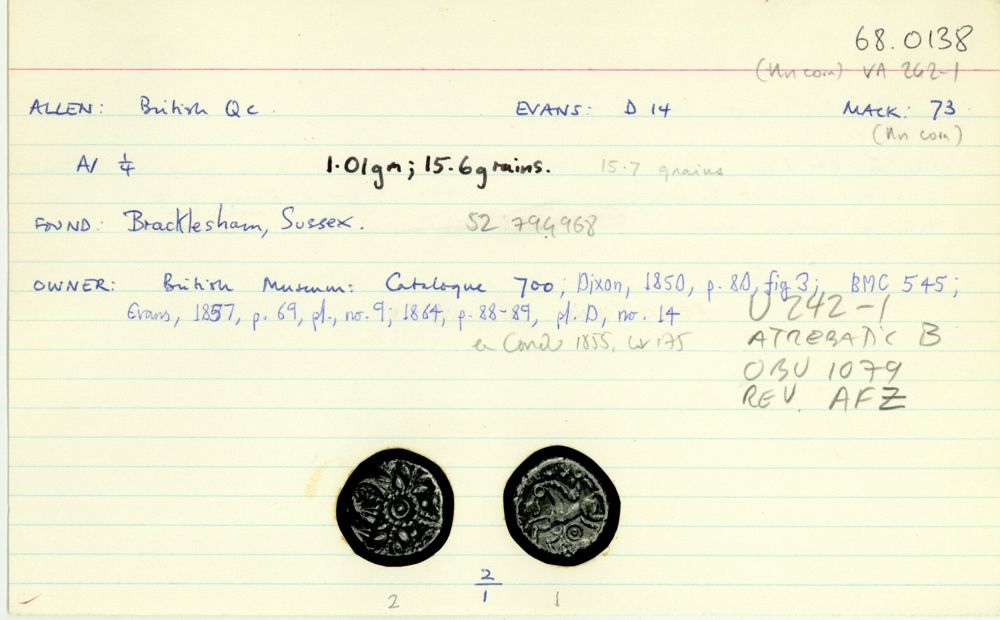 68.0138
(Un coin) VA 262-1
ALLEN: British Qc. EVANS: D 14 MACK: 73
(Un coin)
A/ 1/4 1.01gm; 15.6grains. 15.7 grains
FOUND: Bracklesham, Sussex. SZ 794968
OWNER: British Museum: Catalogue 700; Dixon, 1850, p. 80, fig 3; BMC 545;
Evans, 1857, p. 69, pl., no. 9; 1864, p. 88-89, pl. D, no. 14
U 242-1
ex 1855, 175
ATREBATIC B
OBV 1079
REV. AFZ
2/1
2 1